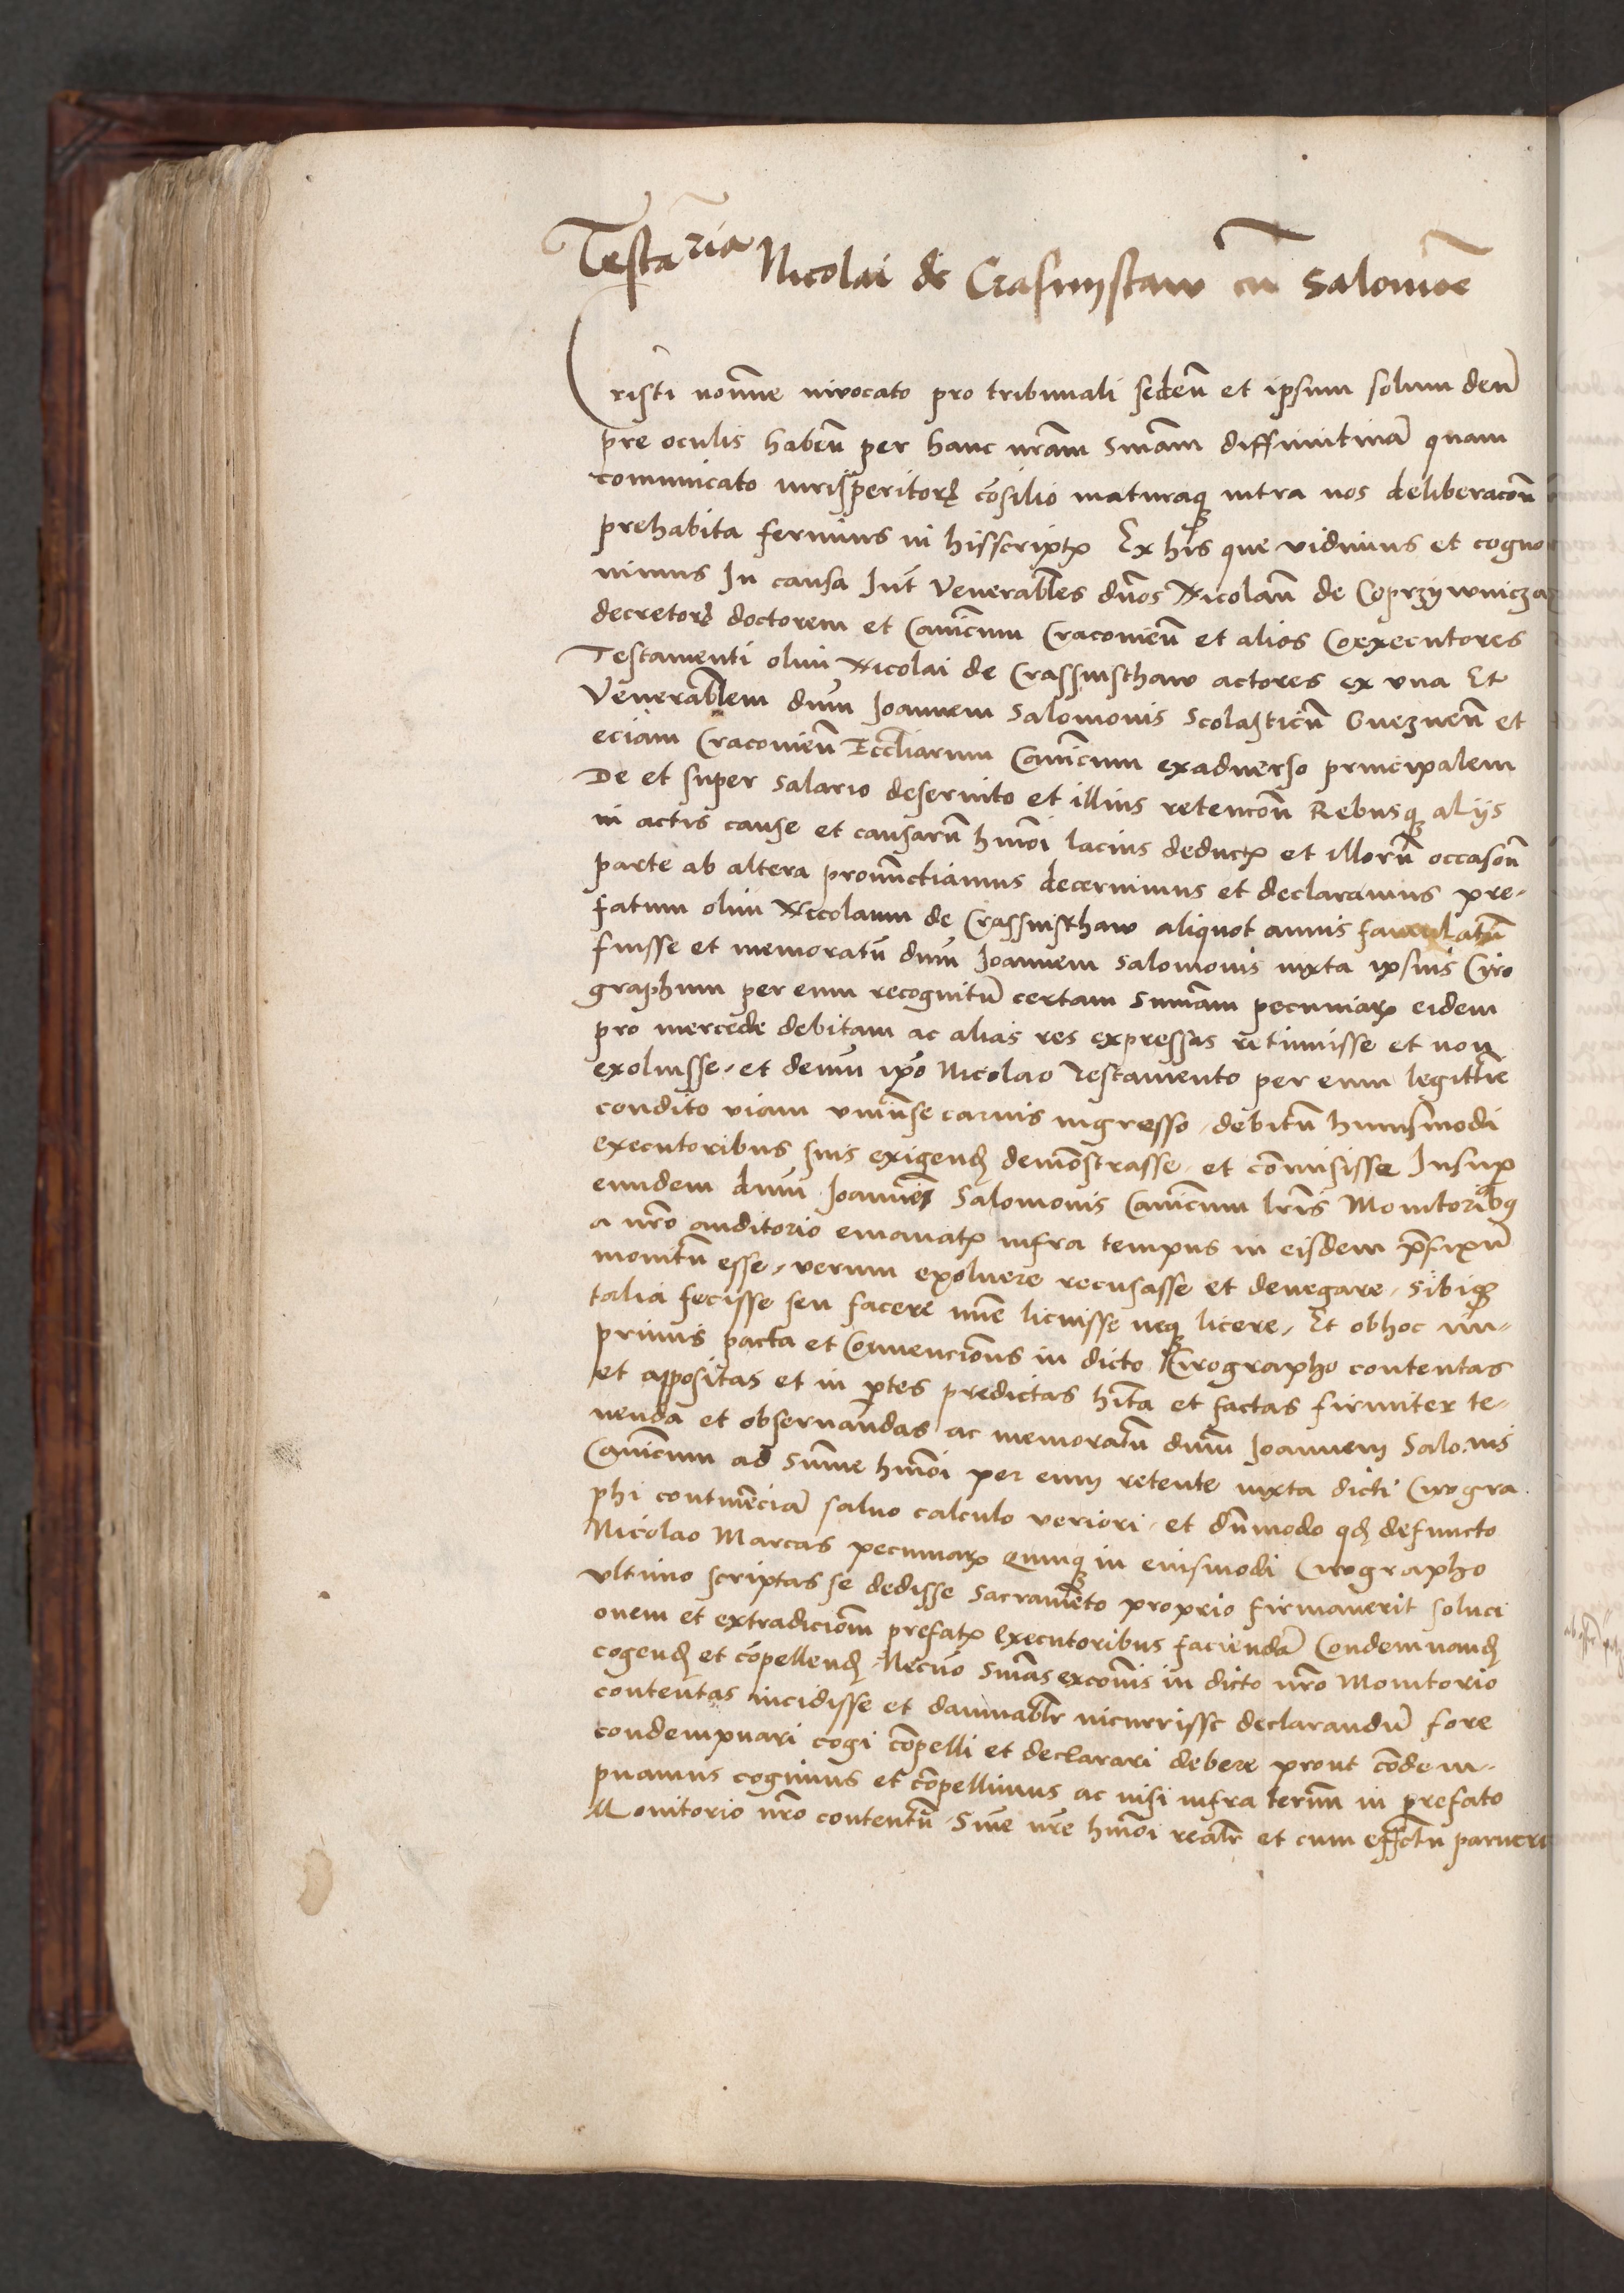 Testaria Nicolai de Crasnystaw cu̅ Salomo̅e
Cristi no̅me invocato pro tribunali seden̅ et ipsum solum deu̅
pre oculis haben̅ per hanc nr̅am sn̅iam diffinitiua̅ quam
comunicato iurisperitorꝝ co̅silio maturaqꝫ intra nos deliberaco̅n
prehabita ferimus in hisscriptꝭ Ex his que vidimus et cogno
nimus In causa Int̅ Venerabl̅es dn̅os Nicolau̅ de Coprzywnicza
decretorꝝ doctorem et Canicum Cracovien̅ et alios Coexecutores
Testamenti olim Nicolai de Crassnisthaw actores ex vna Et
Venerabl̅em dnu̅m Joannem Salomonis Scolasticu̅ Gneznen̅ et
eciam Cracovien̅ Eccl̅iarum Canicum exaduerso principalem
De et super salario deseruito et illius retenco̅n Rebusqꝫ alijs
in actis cause et causaru̅ hm̅oi lacius deductꝭ et illoru̅ occaso̅n
parte ab altera pronu̅nctiamus decernimus et declaramus pre-
fatum olim Nicolaum de Crassnisthaw aliquot annis famulatu̅
fuisse et memoratu̅ dnu̅m Joannem Salomonis iuxta ipsius Ciro
graphum per eum recognitu̅ certam sum̅am pecuniarꝝ eidem
pro mercede debitam ac alias res expressas retinuisse et non
exoluisse, et demu̅ ip̅o Nicolao Testamento per eum legitti̅e
condito viam vniu̅se carnis ingresso, debitu̅ huiusmodi
executoribus suis exigendꝭ demo̅strasse, et com̅isisse Insupꝑ
eundem dnu̅m Joannem Salomonis Canicum lr̅is Monitoribꝫ
a nr̅o auditorio emanatꝭ infra tempus in eisdem p̅fixu̅
monitu̅ esse, verum exoluere recusasse et denegare, sibiqꝫ
talia fecisse seu facere mi̅e licuisse neqꝫ licere, Et obhoc im-
primis pacta et Co̅uencio̅ns in dicto Cirographo contentas
et appositas et in p̅tes predictas hi̅ta et factas firmiter te-
nenda et obseruandas ac memoratu̅ dnu̅m Joannem Salo.nis
Canicum ad sum̅e hm̅oi per eum retente iuxta dicti Cirogra
phi contine̅cia̅ saluo calculo veriori, et du̅modo qđ defuncto
Nicolao Marcas pecuniarꝝ quinqꝫ in eiusmodi Cirographo
vltimo scriptas se dedisse Sacrame̅to proprio firmauerit soluci
onem et extradicio̅m prefatꝭ Executoribus facienda̅ Condemnandꝭ
cogendꝭ et co̅pellendꝭ, Necno̅ sn̅ias exco̅nis in dicto nr̅o Monitorio
contentas incidisse et damnabl̅r incurrisse declarandu̅ fore
condempnari cogi co̅pelli et declarari debere prout co̅dem-
pnamus cogimus et co̅pellimus ac nisi infra termi̅m in prefato
Monitorio nr̅o contentu̅ sn̅ie nr̅e hm̅oi realr̅ et cum effectu parueri